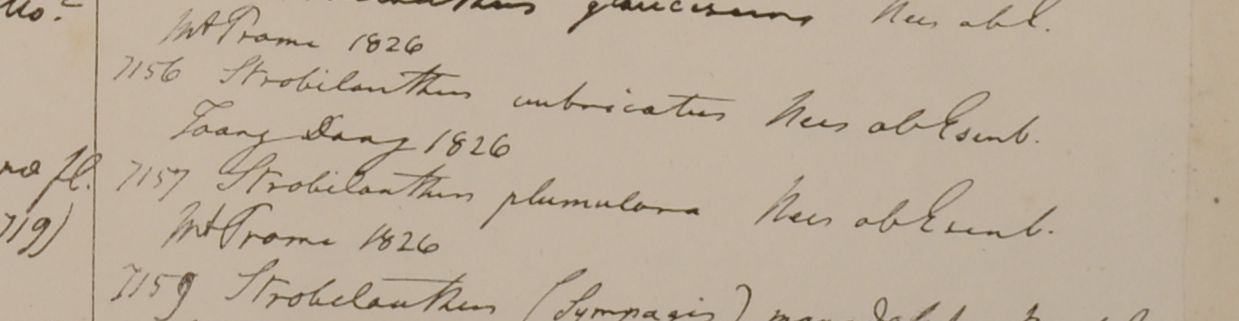 glaucescens Nees ab E.
Mt Prome 1826
7156 Strobilanthus imbricatus Nees ab Esenb.
Taong Dong 1826
fl. 7157 Strobilanthus plumulosa Nees ab Esenb.
719) Mt Prome 1826
7159 Strobilanthus (Sympagis)